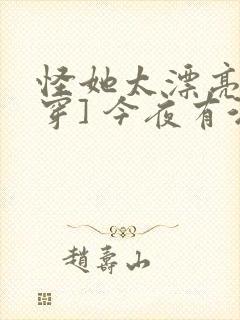 怪她太漂亮
穿]今夜有
趙壽山